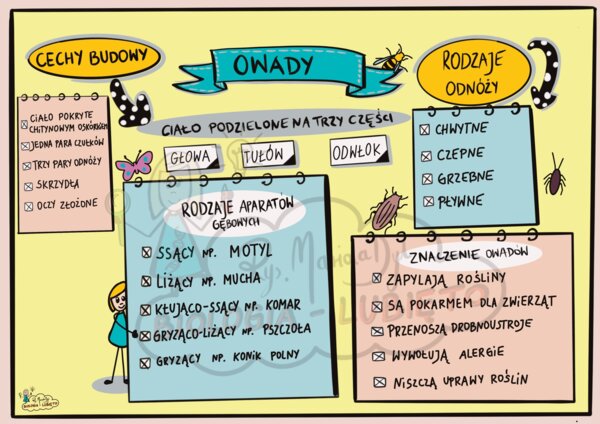 CECHY BUDOWY
OWADY
RODZAJE
ODNÓŻY
CIAŁO POKRYTE
CHITYNOWYM OSKÓRKIEM
JEDNA PARA CZUŁKÓW
TRZY PARY ODNÓŻY
SKRZYDŁA
OCZY ZŁOŻONE
CIAŁO PODZIELONE NA TRZY CZĘŚCI
GŁOWA
TUŁÓW
ODWŁOK
CHWYTNE
CZEPNE
GRZEBNE
PŁYWNE
RODZAJE APARATÓW
GĘBOWYCH
SSĄCY NP. MOTYL
LIŻĄCY NP. MUCHA
KŁUJĄCO-SSĄCY NP. KOMAR
GRYZĄCO-LIŻĄCY NP. PSZCZOŁA
GRYZĄCY NP. KONIK POLNY
ZNACZENIE OWADÓW
ZAPYLAJĄ ROŚLINY
SĄ POKARMEM DLA ZWIERZĄT
PRZENOSZĄ DROBNOUSTROJE
WYWOŁUJĄ ALERGIE
NISZCZĄ UPRAWY ROŚLIN
BIOLOGIA - LUBIĘ TO